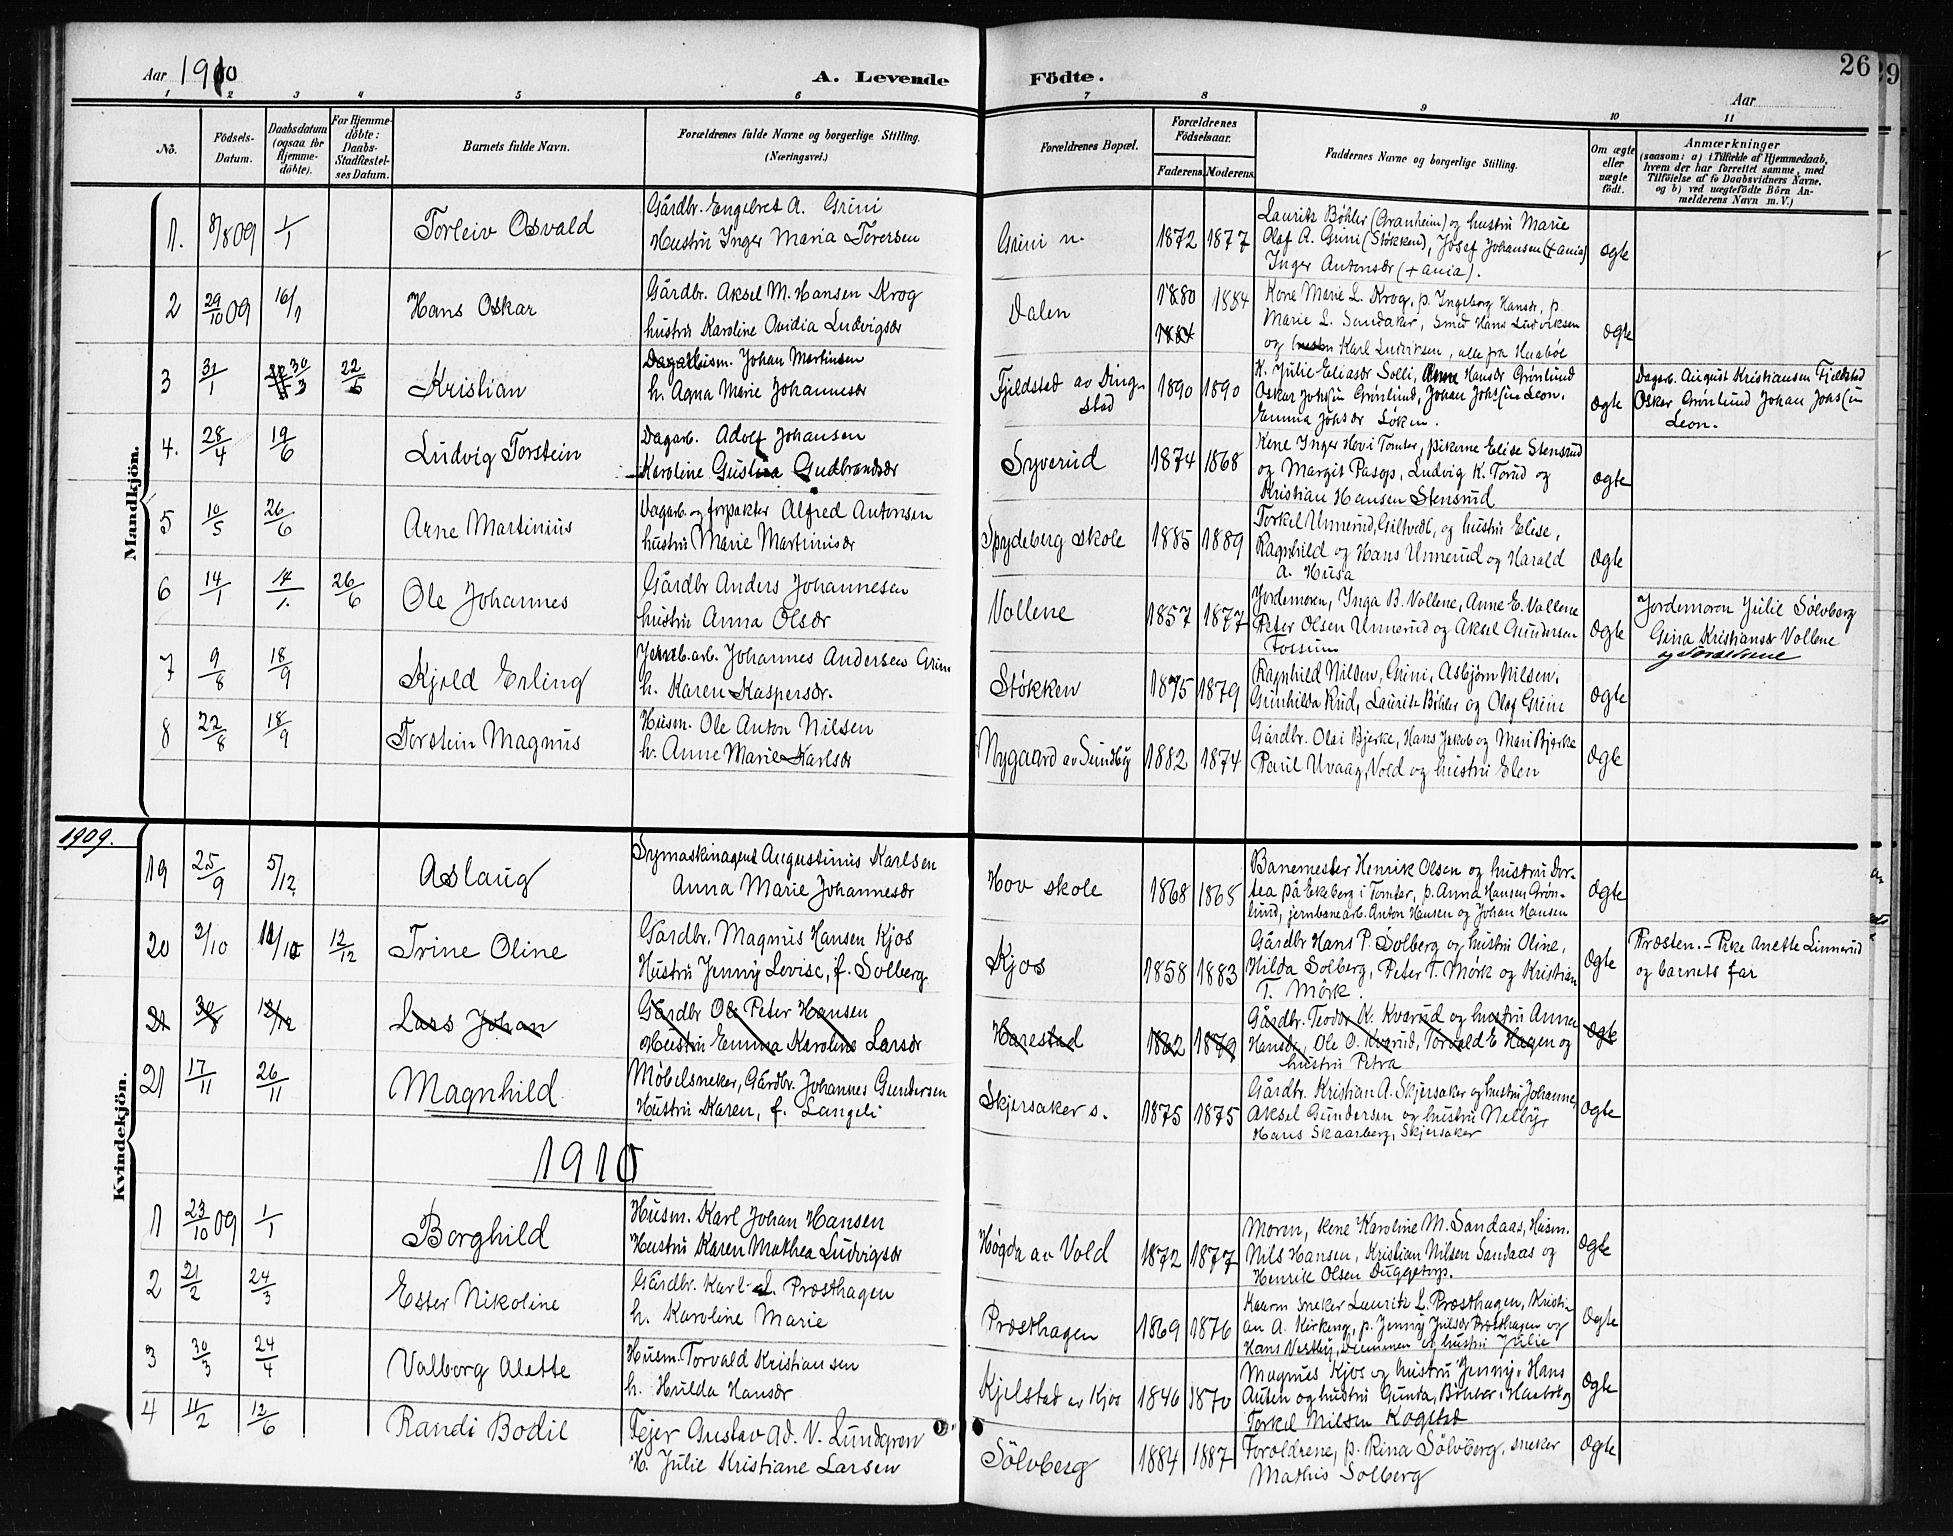 Aar 1910
A. Levende Födte.
26
29
Aar
1 2 3 4 5 6 7 8 9 10 11
No.
Födsels-Datum.
Daabsdatum (ogsaa for Hjemme-döbte).
For Hjemme-döbte: Daabs-Stadfæstel-ses Datum.
Barnets fulde Navn.
Forældrenes fulde Navne og borgerlige Stilling. (Næringsvei.)
Forældrenes Bopæl.
Forældrenes Födselsaar.
Faderens. Moderens.
Faddernes Navne og borgerlige Stilling.
Om ægte eller uægte födt.
Anmærkninger
(saasom: a) i Tilfælde af Hjemmedaab, hvem der har forrettet samme, med Tilföielse af to Daabsvidners Navne, og b) ved uægtefödte Börn An-melderens Navn m. V.)
Mandkjön.
1. 8/8 09 1/1 Torleiv Osvald
Gårdbr. Engebret A. Grini
Hustru Inger Maria Torersen
Grini n. 1872 1877
Laurits Bøhler (Granheim) og hustru Marie
Olaf A. Grini (Støkken), Josef Johansen (+ania)
Inger Antonsdr (+ania).
ægte
2 29/10 09 16/1 Hans Oskar
Gårdbr. Aksel M. Hansen Krog
hustru Karoline Ovidia Ludvigsdr
Dalen 1880 1884
1884
Kone Marie L. Krog, p. Ingeborg Hansdr, p.
Marie L. Sandaker, smed Hans Ludviksen
og Karl Ludviksen, alle fra Haabøl
ægte
3 31/1 30/3 22/5 Kristian
Husm. Johan Martinsen
h. Agna Marie Johannesdr
Fjeldstad av Ding-
stad 1890 1890
K. Julie Eliasdr Solli, Hansdr Grønlund
Oskar Johs(in Grønlund, Johan Johs(in Leon.
Emma Johsdr Løken.
ægte
Dagarb. August Kristiansen Fjeldstad
Oskar Grønlund Johan Johs(in
Leon.
4. 28/4 19/6 Ludvig Torstein
Dagarb. Adolf Johansen
Karoline Gustava Gudbrandsdr
Syverud 1874 1868
Kone Inger Hovi Tomter, pikerne Elise Stensrud
og Margit Pasop, Ludvig K. Torud og
Kristian Hansen Stensrud
ægte
5 10/5 26/6 Arne Martinius
Dagarb. og forpakter Alfred Antonsen
hustru Marie Martinisdr
Spydeberg skole 1885 1889
Torkel Unnerud, Giltvedt, og hustru Elise,
Ragnhild og Hans Unnerud og Harald
A. Husa
ægte
6 14/1 14/1. 26/6 Ole Johannes
Gårdbr Anders Johannesen
hustru Anna Olsdr
Vollene 1857 1877
Jordemoren, Inga B. Vollene, Anne E. Vollene
Peter Olsen Unnerud og Aksel Gundersen
Fossum
ægte
Jordemoren Julie Sölvberg
Gina Kristiansdr Vollene
og Forældrene
7 9/8 18/9 Kjeld Erling
Jernb.arb. Johannes Andersen Grini
h. Karen Kaspersdr.
Støkken 1875 1879
Ragnhild Nilsen, Grini, Asbjørn Nilsen,
Gunhilda Rud, Laurits Bøhler og Olaf Grini
ægte
8 22/8 18/9 Torstein Magnus
Husm. Ole Anton Nilsen
h. Anne Marie Karlsdr
Nygaard av Sundby 1882 1874
Gårdbr. Olai Bjerke, Hans Jakob og Mari Bjerke
Paul Uvaag, Vold og hustru Elen
ægte
1909.
Kvindekjön.
19 25/9 5/12 Aslaug
Symaskinagent Augustinus Karlsen
Anna Marie Johannesdr
Hov skole 1868 1865
Banemester Henrik Olsen og hustru Dor-
tea på Ekeberg i Tomter, p. Anna Hansen Grøn-
lund, jernbanearb. Anton Hansen og Johan Hansen
ægte
20 2/10 11/10 12/12 Trine Oline
Gårdbr. Magnus Hansen Kjos
Hustru Jenny Lovise, f. Solberg
Kjos 1858 1883
Gårdbr Hans P. Solberg og hustru Oline,
Hilda Solberg, Peter T. Mørk og Kristian
T. Mørk.
ægte
Præsten. – Pike Anette Linnerud
og barnets far
21 30/8 12/12 Lars Johan
Gårdbr Ole Peter Hansen
Hustru Emma Karoline Larsdr
Harestad 1882 1879
Gårdbr. Teodor K. Kverud og hustru Anna
Hansdr, Ole O. Kverud, Torvald E Hagen og
hustru Petra
ægte
21 17/11 26/11 Magnhild
Møbelsneker, Gårdbr. Johannes Gundersen
Hustru Karen, f. Langeli
Skjersaker s. 1875 1875
Gårdbr. Kristian A. Skjersaker og hustru Johanne,
Aksel Gundersen og hustru Nelly,
Hans Skaarberg, Skjersaker
ægte
1910
1 23/10 09 1/1 Borghild
Husm. Karl Johan Hansen
Hustru Karen Mathea Ludvigsdr
Høgda av Vold 1872 1877
Moren, kone Karoline M. Sandaas, Husm.
Nils Hansen, Kristian Nilsen Sandaas og
Henrik Olsen Duggetorp.
ægte
2 21/2 24/3 Ester Nikoline
Gårdbr. Karl L. Præsthagen
h. Karoline Marie
Præsthagen 1869 1876
sneker Laurits L. Præsthagen, Kristi-
an A. Kirkeng, p. Jenny Julsdr Præsthagen og
Hans Vestby, Dammen og hustru Julie
ægte
3 30/3 24/4 Valborg Alette
Husm. Torvald Kristiansen
h. Hulda Hansdr
Kjelstad av Kjos 1846 1870
Magnus Kjos og hustru Jenny, Hans
Auten og hustru Gunda, Bøhler i Haabøl og
Torkel Nilsen Kogstad
ægte
4 11/2 12/6 Randi Bodil
Fejer Gustav Ad. V. Lundgren
H. Julie Kristiane Larsen
Sölvberg 1884 1887
Forældrene, p. Rina Sølvberg, sneker
Mathis Solberg
ægte